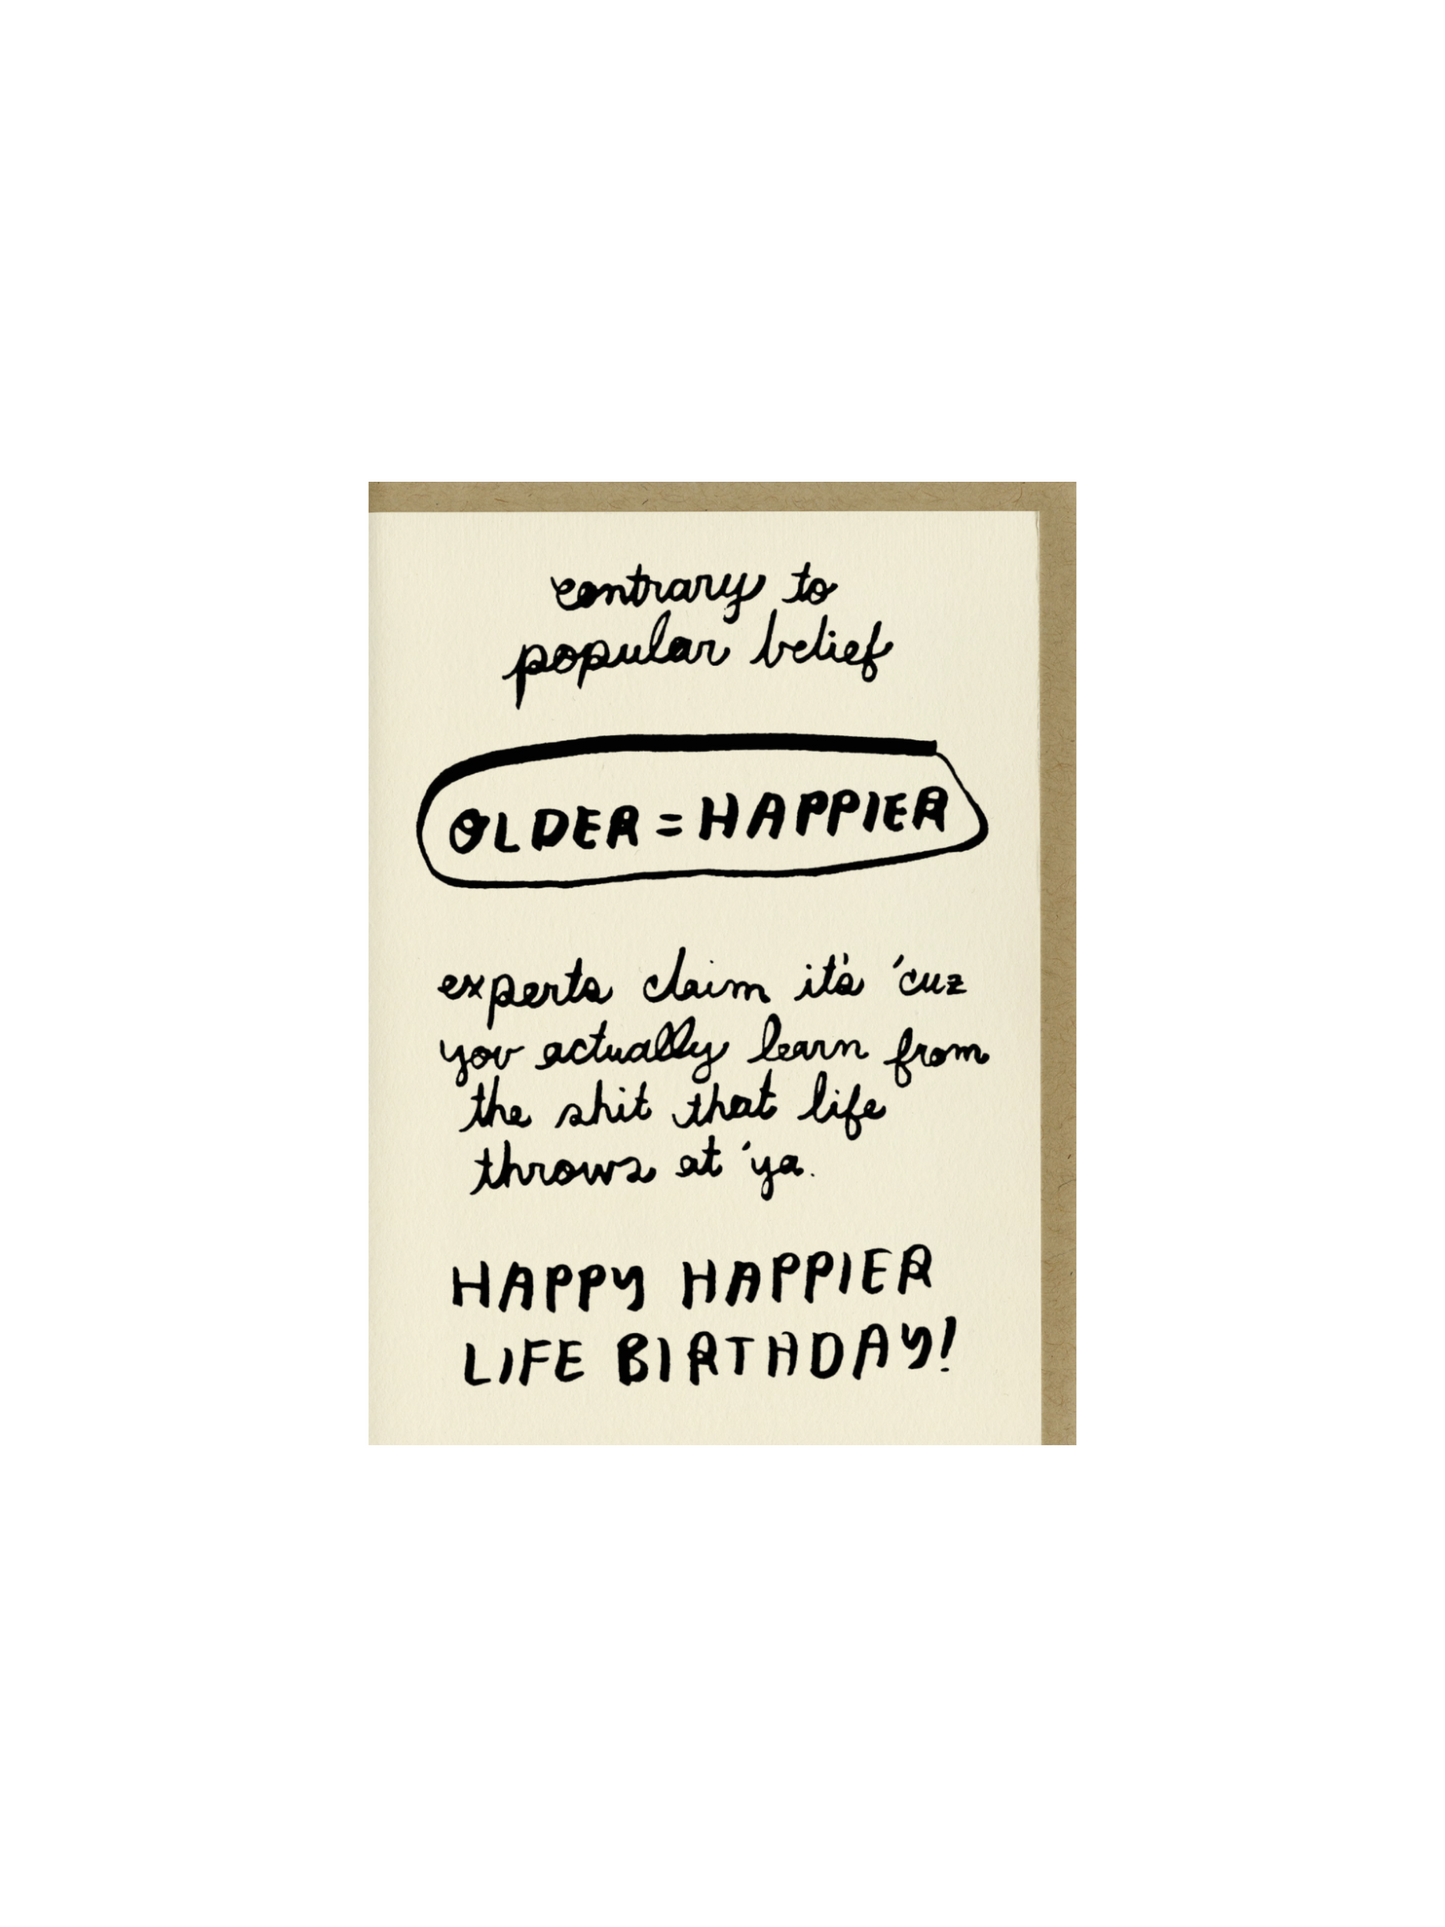 contrary to
popular belief
OLDER = HAPPIER
experts claim it's 'cuz
you actually learn from
the shit that life
throws at 'ya.
HAPPY HAPPIER
LIFE BIRTHDAY!